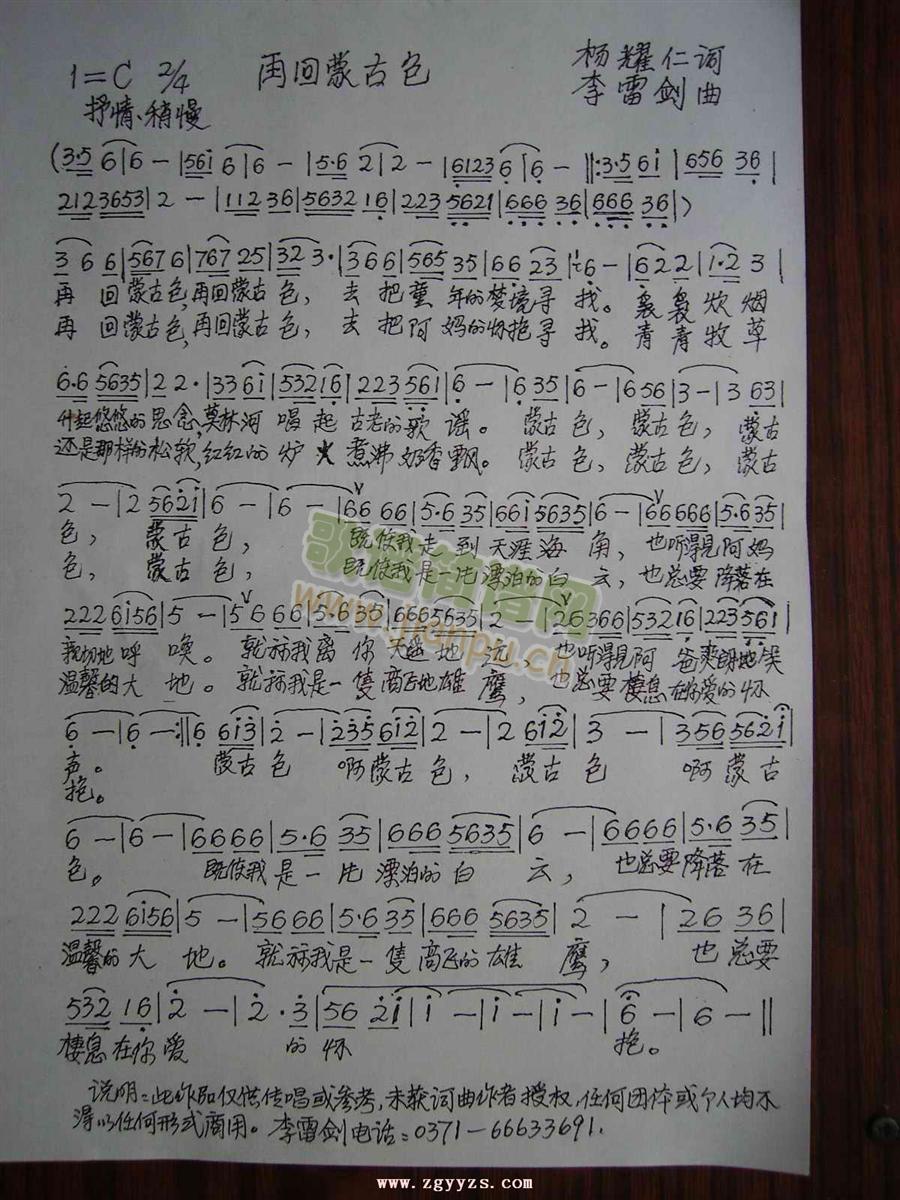 1=C 2/4 再回蒙古包 杨耀仁词
抒情、稍慢 李雷剑曲
(3·5 6|6 — |56i 6|6 — |5·6 2|2 — |6123 6|6 — ‖:3·5 6i |656 36 |
2123653|2 — |112 36|5632 16|223 5621|666 36|666 36|)
3 6 6|567 6|767 25|32 3·|366|565 35|66 23|6 — |622|1·2 3|
再回蒙古包,再回蒙古包,去把童年的梦境寻找。袅袅炊烟
再回蒙古包,再回蒙古包,去把阿妈的怀抱寻找。青青牧草
6·6 5635|2 2·|33 6i|532 16|223 561|6 — |6 35|6 — |6 56|3 — |3 63|
升起悠悠的思念,莫林河唱起古老的歌谣。蒙古包,蒙古包,蒙古
还是那样的松软,红红的炉火煮沸奶香飘。蒙古包,蒙古包,蒙古
2 — |2 562i|6 — |6 — |66 66|5·6 35|66i 5635|6 — |66666|5·6 35|
包,蒙古包,既使我走到天涯海角,也听得见阿妈
包,蒙古包,既使我是一片漂泊的白云,也总要降落在
222 6i56|5 — |5 6 66|5·6 35|666 5635|2 — |26366|532 16|223 561|
亲切地呼唤。就祘我离你天遥地远,也听得见阿爸爽朗地笑
温馨的大地。就祘我是一隻高飞地雄鹰,也总要棲息在你爱的怀
6 — |6 — :‖6 6i3|2 — |235 6i2|2 — |2 6i2|3 — |356 562i|
声。蒙古包 啊蒙古包,蒙古包 啊蒙古
抱。
6 — |6 — |6666|5·6 35|666 5635|6 — |6666|5·6 35|
包。既使我是一片漂泊的白云,也总要降落在
222 6i56|5 — |5666|5·6 35|666 5635|2 — |26 36|
温馨的大地。就祘我是一隻高飞的雄鹰,也总要
532 16|2 — |2·3|56 2i|i — |i — |i — |6 — |6 — ‖
棲息在你爱的怀抱。
说明:此作品仅供传唱或参考,未获词曲作者授权,任何团体或个人均不
得以任何形式商用。李雷剑电话:0371—66633691.
歌谱简谱网
www.jianpu.cn
www.zgyyzs.com